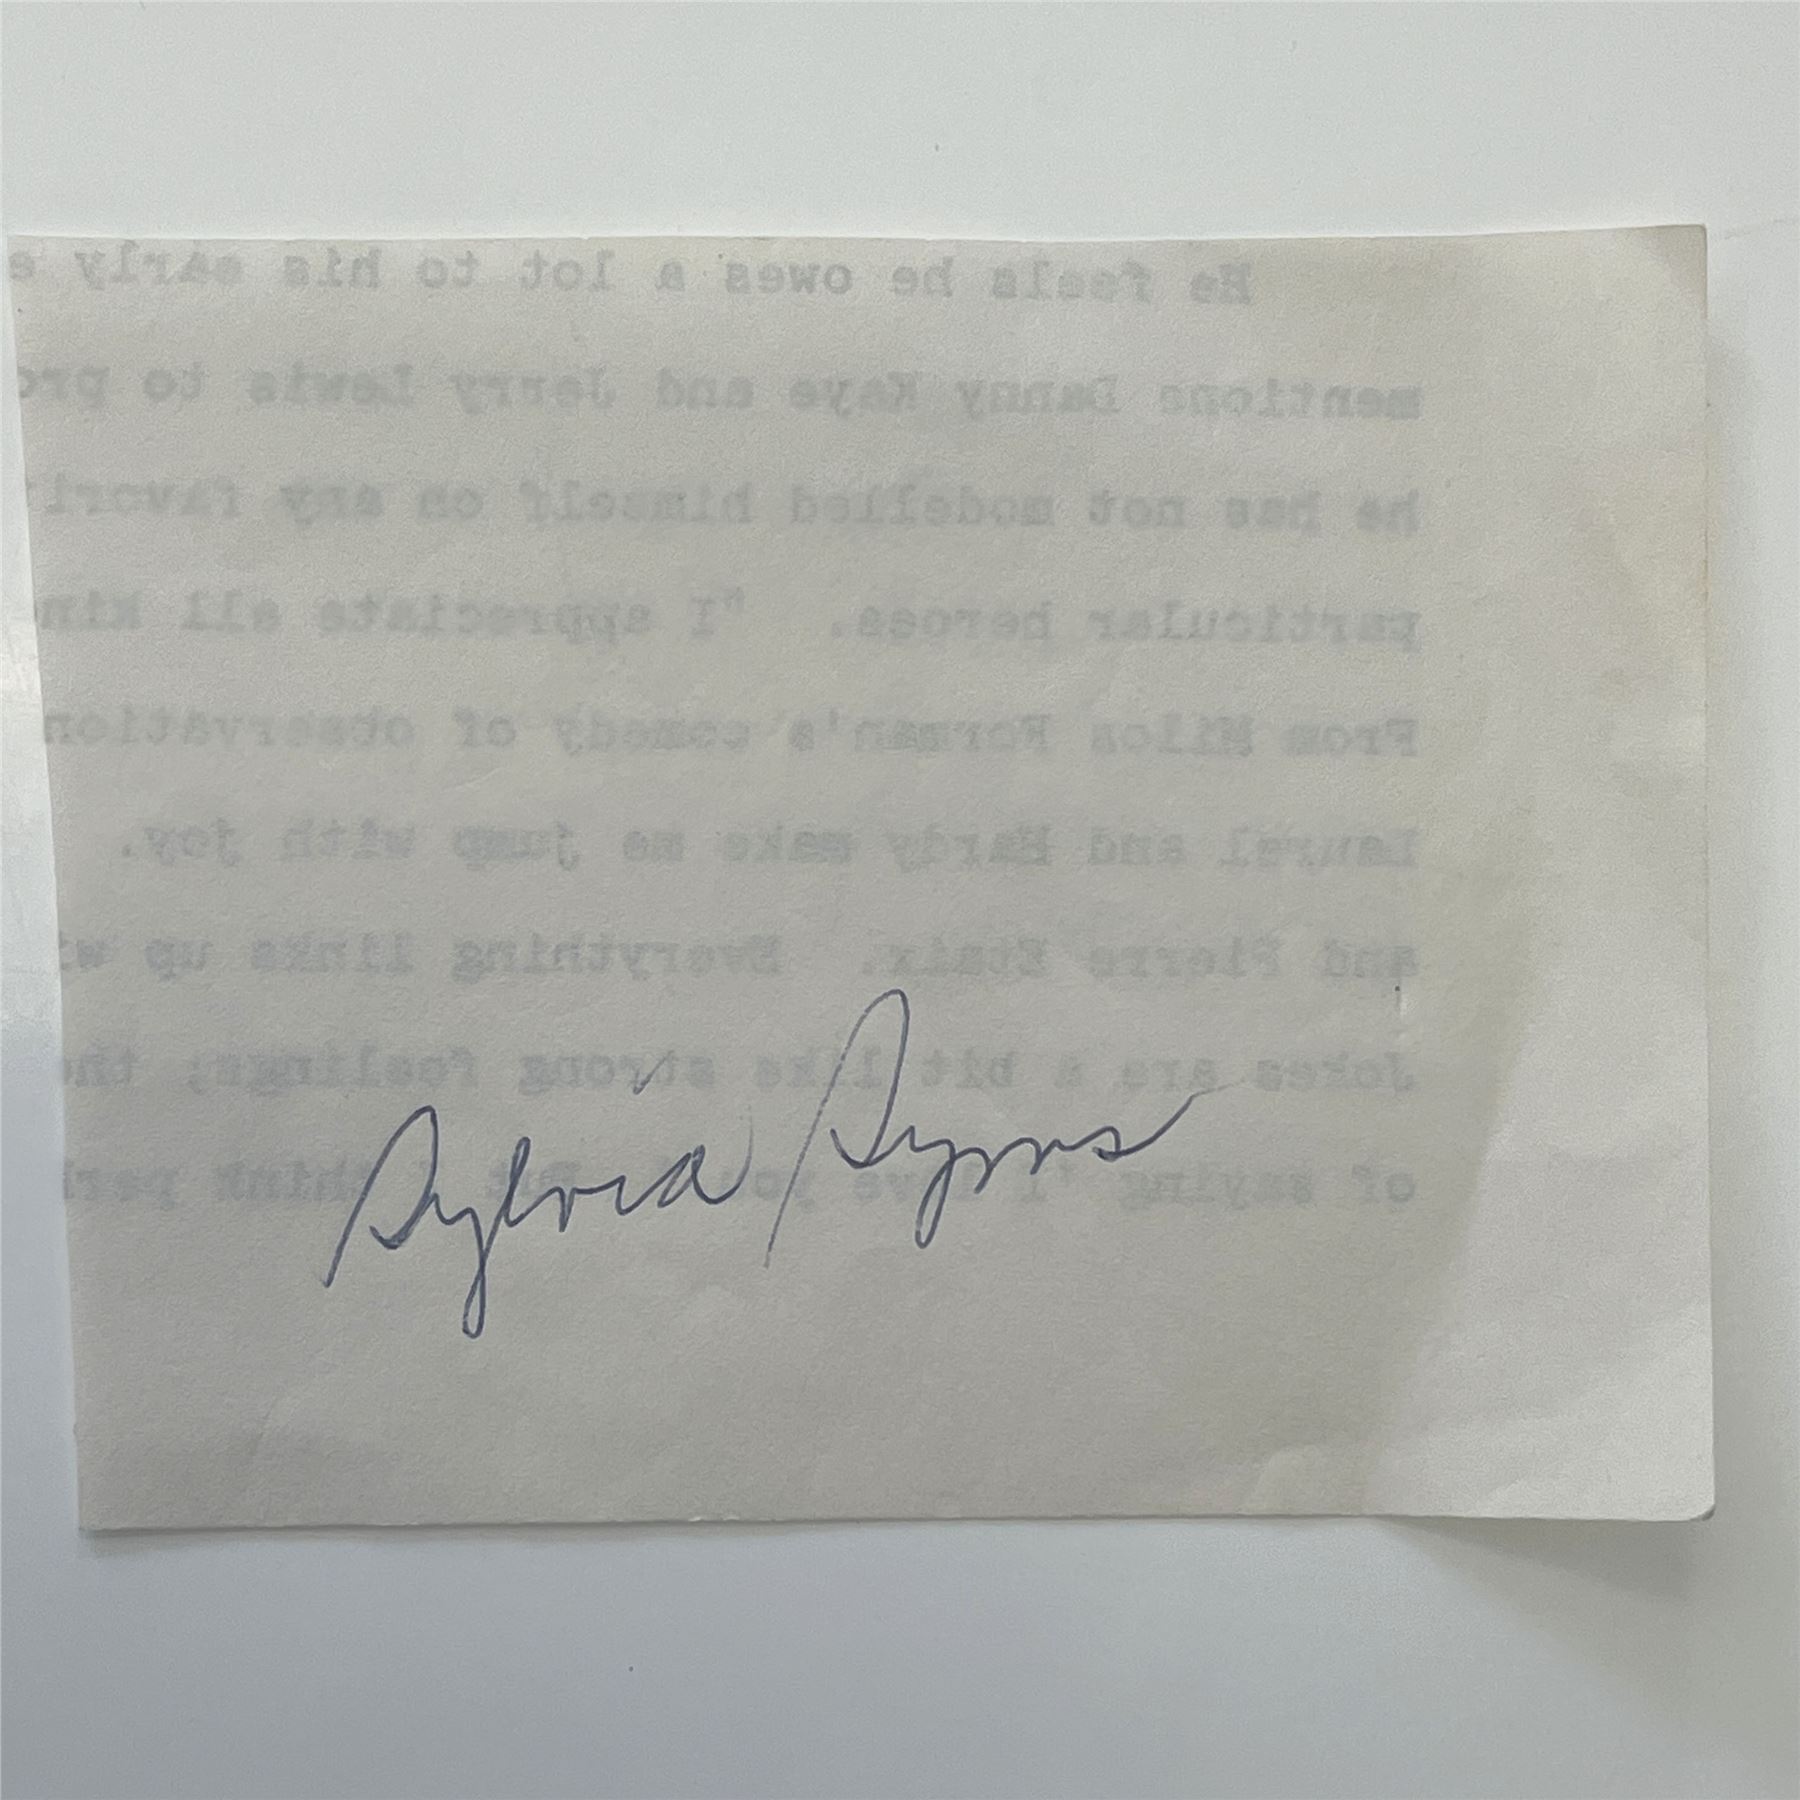 He feels he owes a lot to his early e
mentions Danny Kaye and Jerry Lewis to pro
he has not modelled himself on any favori
particular heroes. "I appreciate all kin
From Milos Forman's comedy of observation
Laurel and Hardy make me jump with joy.
and Pierre Etaix. Everything links up wi
Jokes are a bit like strong feelings; the
of saying 'I love you'. But I think perh
Sylvia Syms